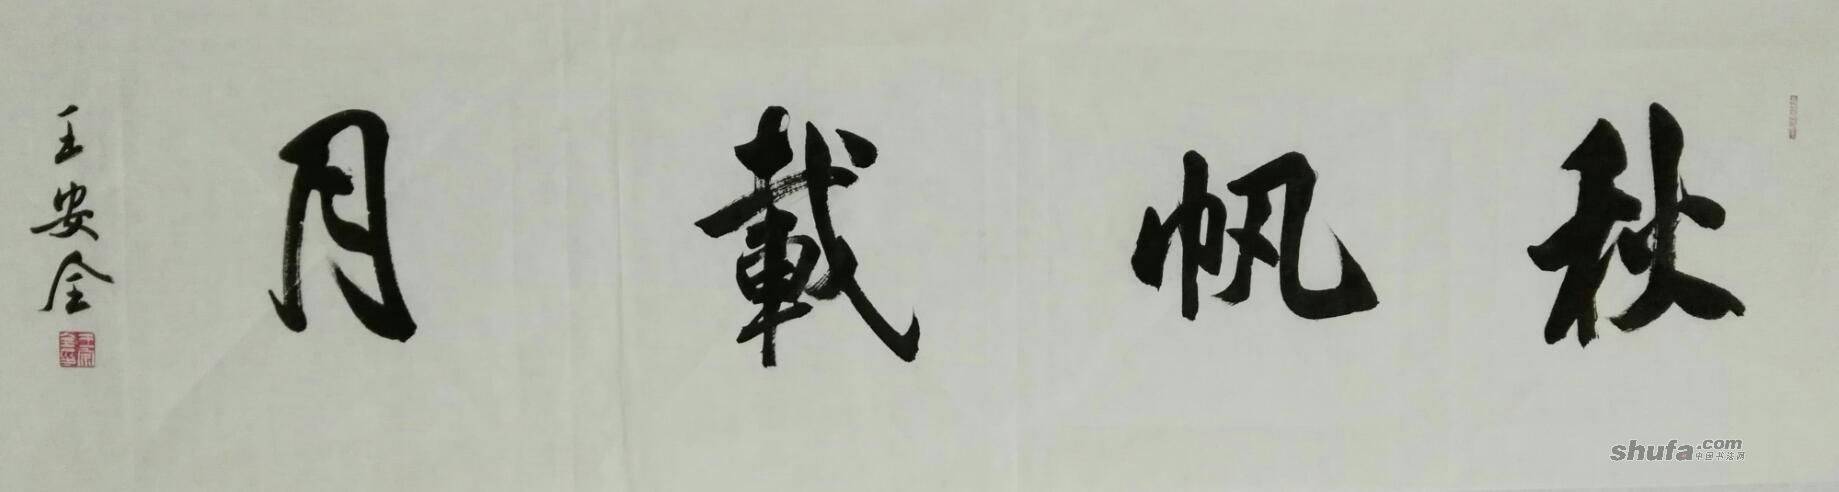 秋帆載月
王安全
shufa.com
中国书法网